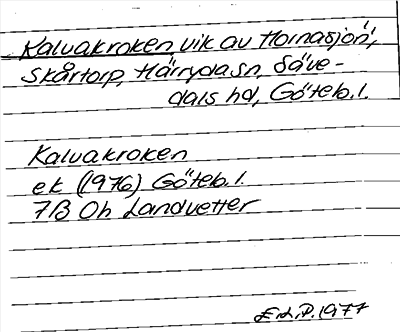 Kalvakroken, vik av Hornasjön,
Skårtorp, Härryda sn, Säve-
dals hd, Göteb. l.
Kalvakroken
ek (1976) Göteb. l.
7B Oh Landvetter
E.L.P. 1977